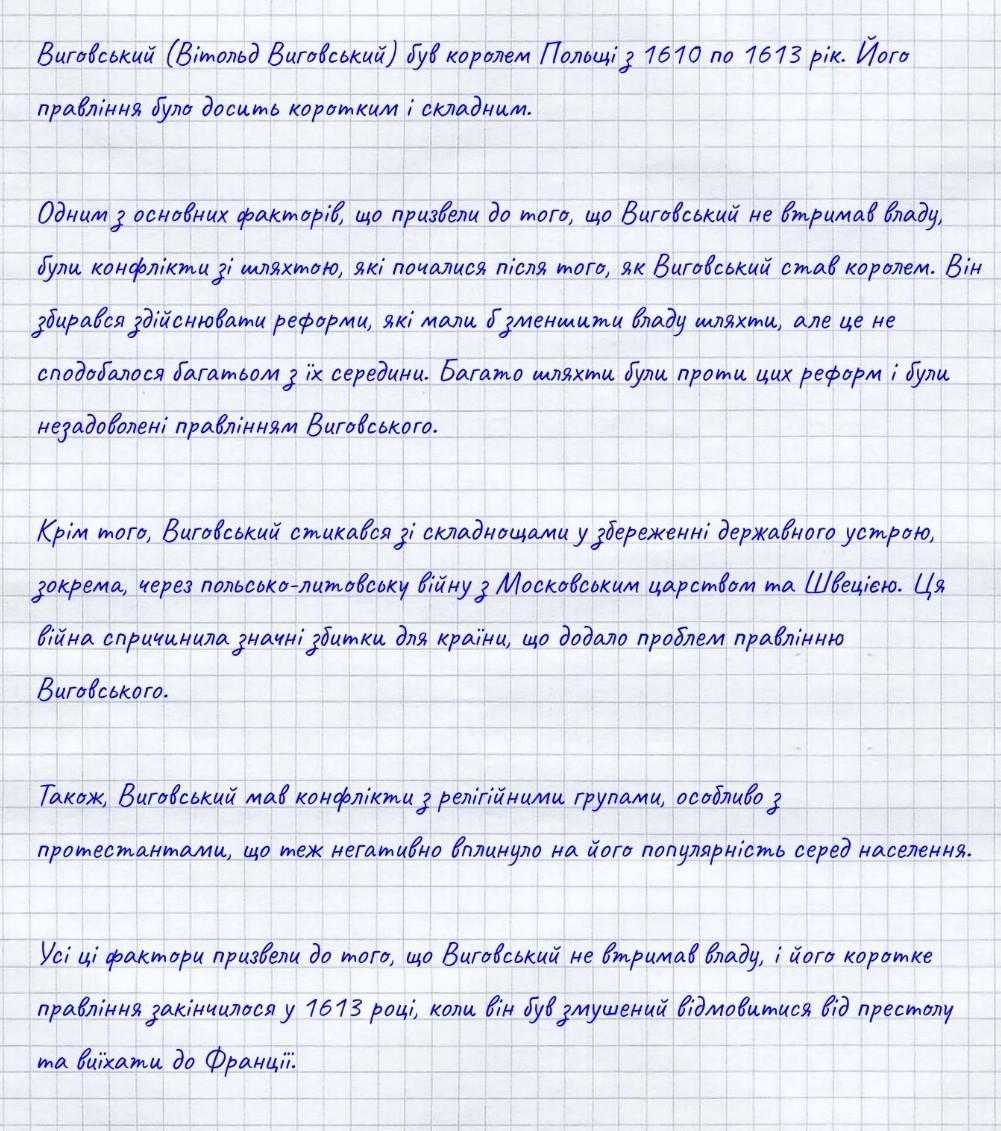 Виговський (Вітольд Виговський) був королем Польщі з 1610 по 1613 рік. Його
правління було досить коротким і складним.
Одним з основних факторів, що призвели до того, що Виговський не втримав владу,
були конфлікти зі шляхтою, які почалися після того, як Виговський став королем. Він
збирався здійснювати реформи, які мали б зменшити владу шляхти, але це не
сподобалося багатьом з їх середини. Багато шляхти були проти цих реформ і були
незадоволені правлінням Виговського.
Крім того, Виговський стикався зі складнощами у збереженні державного устрою,
зокрема, через польсько-литовську війну з Московським царством та Швецією. Ця
війна спричинила значні збитки для країни, що додало проблем правлінню
Виговського.
Також, Виговський мав конфлікти з релігійними групами, особливо з
протестантами, що теж негативно вплинуло на його популярність серед населення.
Усі ці фактори призвели до того, що Виговський не втримав владу, і його коротке
правління закінчилося у 1613 році, коли він був змушений відмовитися від престолу
та виїхати до Франції.